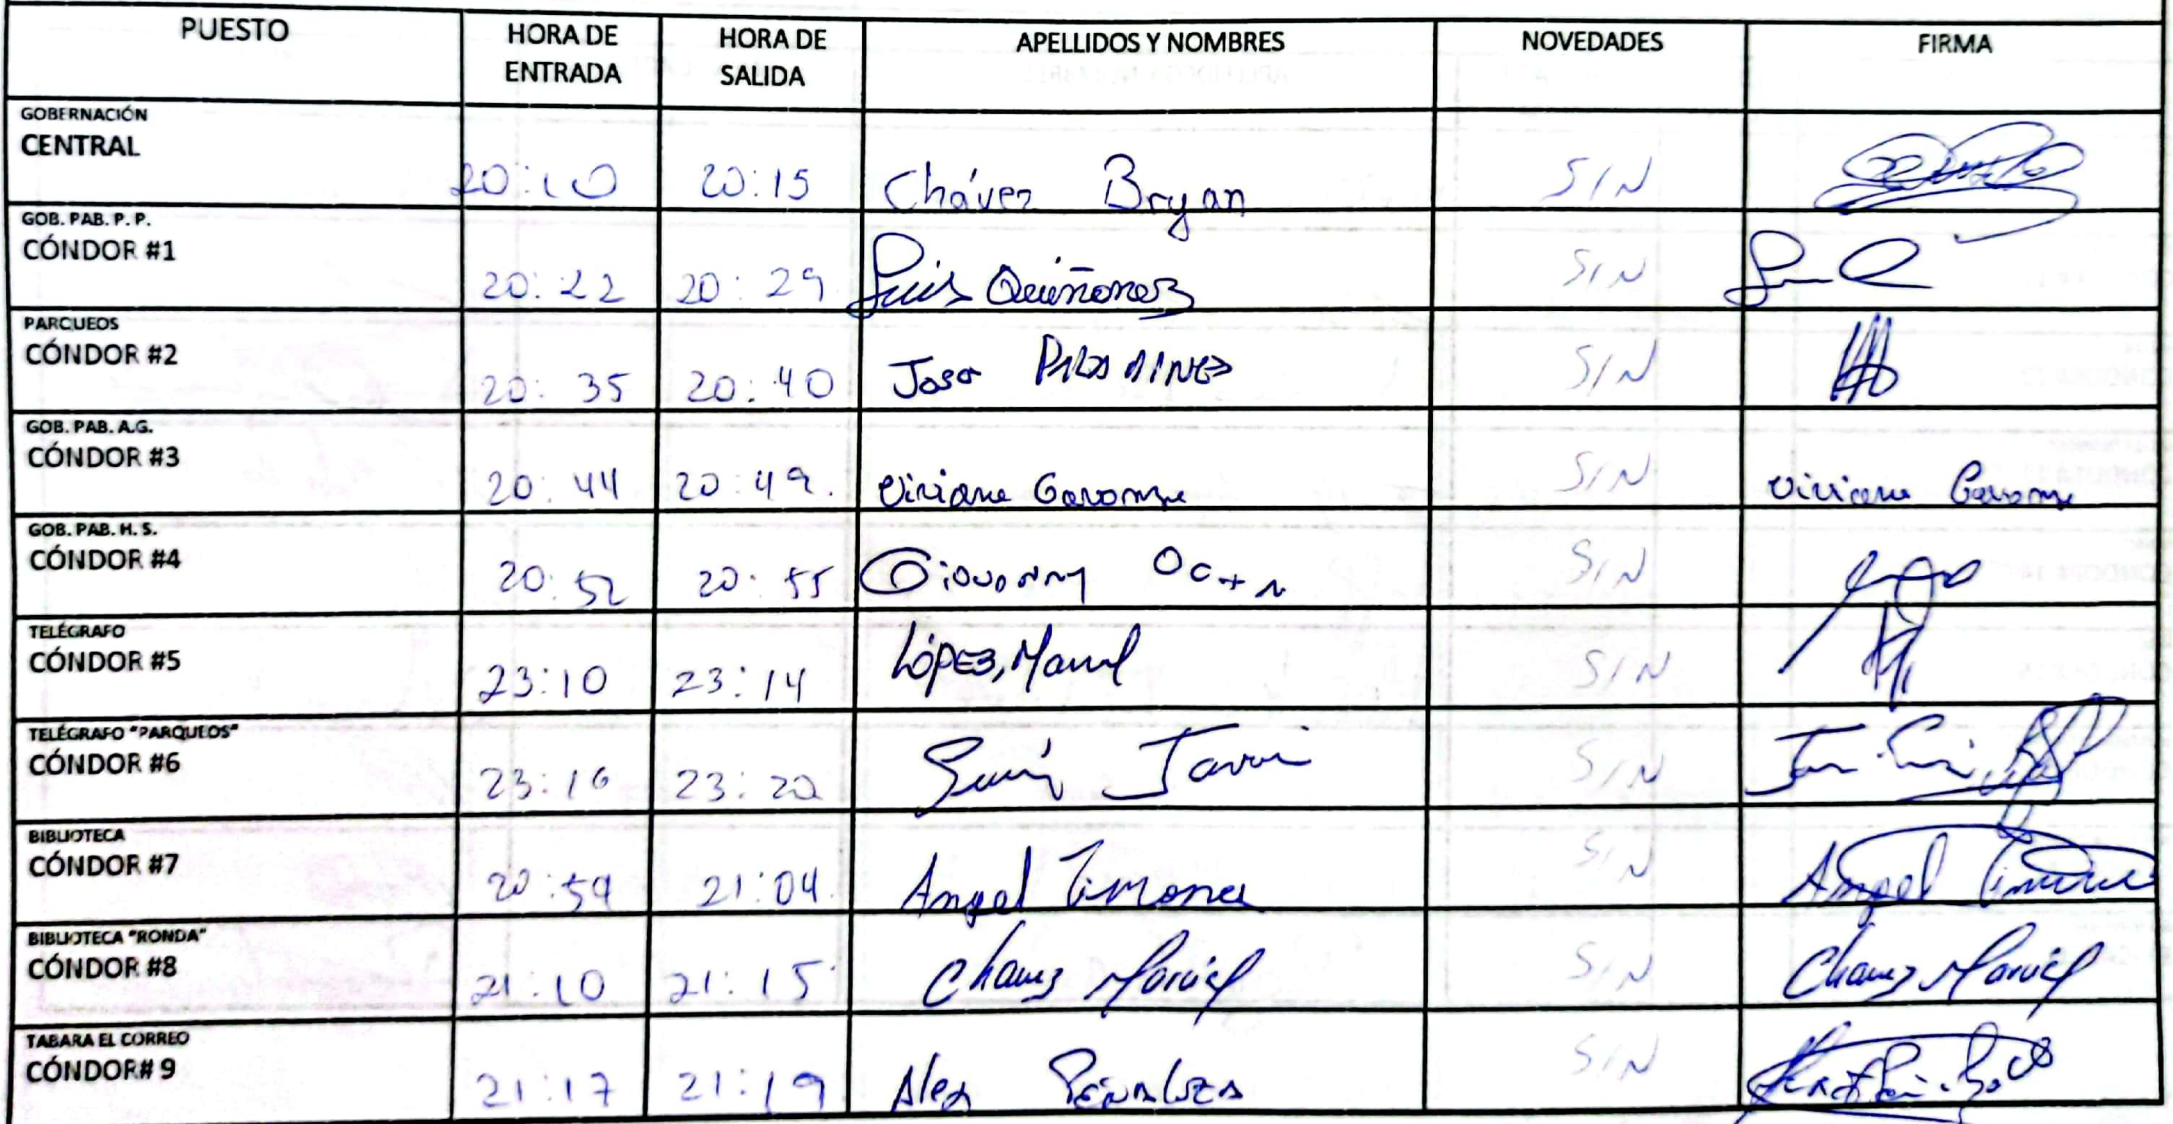 PUESTO HORA DE ENTRADA HORA DE SALIDA APELLIDOS Y NOMBRES NOVEDADES FIRMA
GOBERNACIÓN
CENTRAL 20:10 20:15 Chávez Bryan S/N
GOB. PAB. P. P.
CÓNDOR #1 20:22 20:29 Luis Quiñonez S/N
PARQUEOS
CÓNDOR #2 20:35 20:40 Jose S/N
GOB. PAB. A.G.
CÓNDOR #3 20:44 20:49 Viviana S/N Viviana
GOB. PAB. H. S.
CÓNDOR #4 20:52 20:55 Giovanny S/N
TELÉGRAFO
CÓNDOR #5 23:10 23:14 López, Manuel S/N
TELÉGRAFO "PARQUEOS"
CÓNDOR #6 23:16 23:20 S/N
BIBLIOTECA
CÓNDOR #7 20:59 21:04 Angel S/N Angel
BIBLIOTECA "RONDA"
CÓNDOR #8 21:10 21:15 Chavez S/N Chavez
TABARA EL CORREO
CÓNDOR# 9 21:17 21:19 Alex S/N